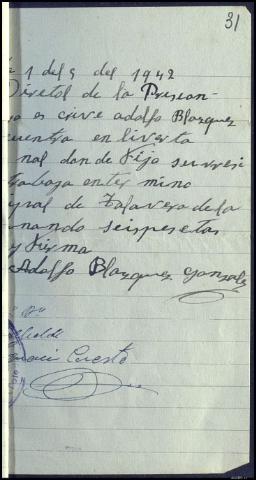 31
a 1 del 9 del 1942
Diretol de la Presean-
os crive adolfo Blazquez
cuentra en liverta
nal don de Fijo surresi
trabaja enter mino
ypal de Talavera de la
nando seispesetas
y Firma
Adolfo Blazquez Gonzalez
Alcalde
Cuesta